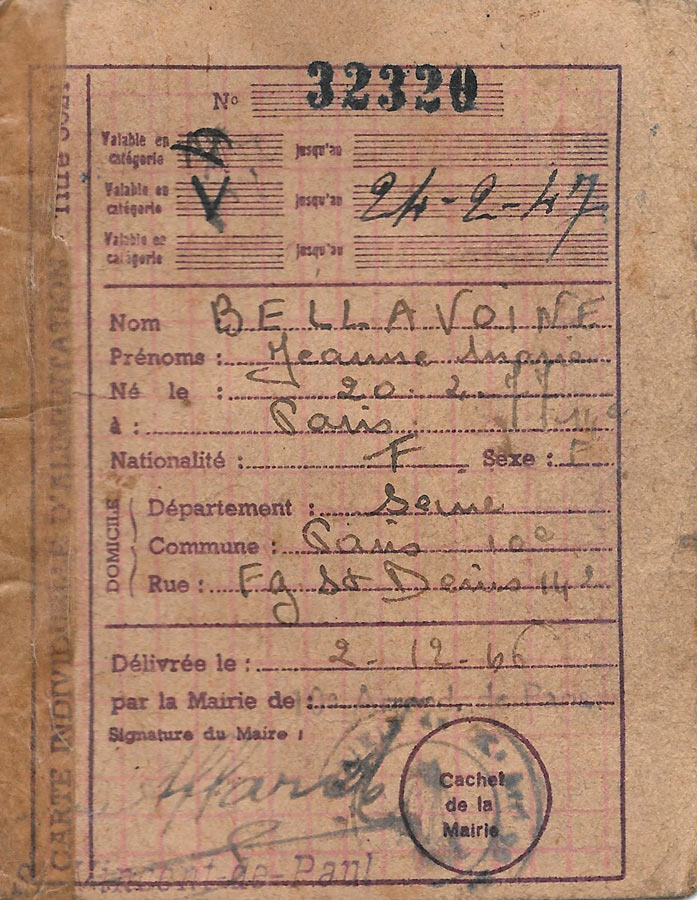 N° 32320
Valable en catégorie A jusqu'au
Valable en catégorie V jusqu'au 24-2-47
Valable en catégorie jusqu'au
Nom BELLAVOINE
Prénoms : Jeanne Marie
Né le : 20.2.77
à : Paris 14e
Nationalité : F Sexe : F
DOMICILE
Département : Seine
Commune : Paris 10e
Rue : Fg St Denis 142
Délivrée le : 2-12-46
par la Mairie de : 10e Arrond. de Paris
Signature du Maire :
Cachet
de la
Mairie
Vincent-de-Paul
CARTE INDIVIDUELLE D'ALIMENTATION